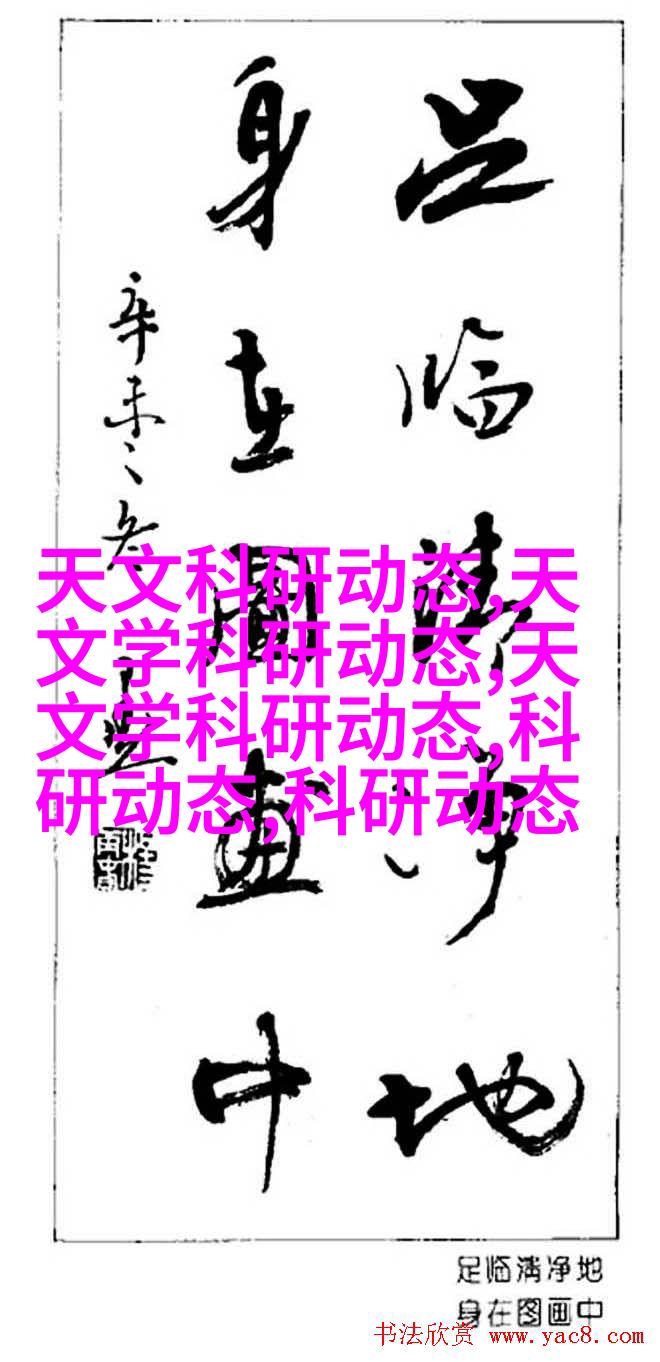 足临清净地
身在图画中
辛未之冬
天文科研动态,天
文学科研动态,天
文学科研动态,科
研动态,科研动态
足临清净地
身在图画中
书法欣赏 www.yac8.com